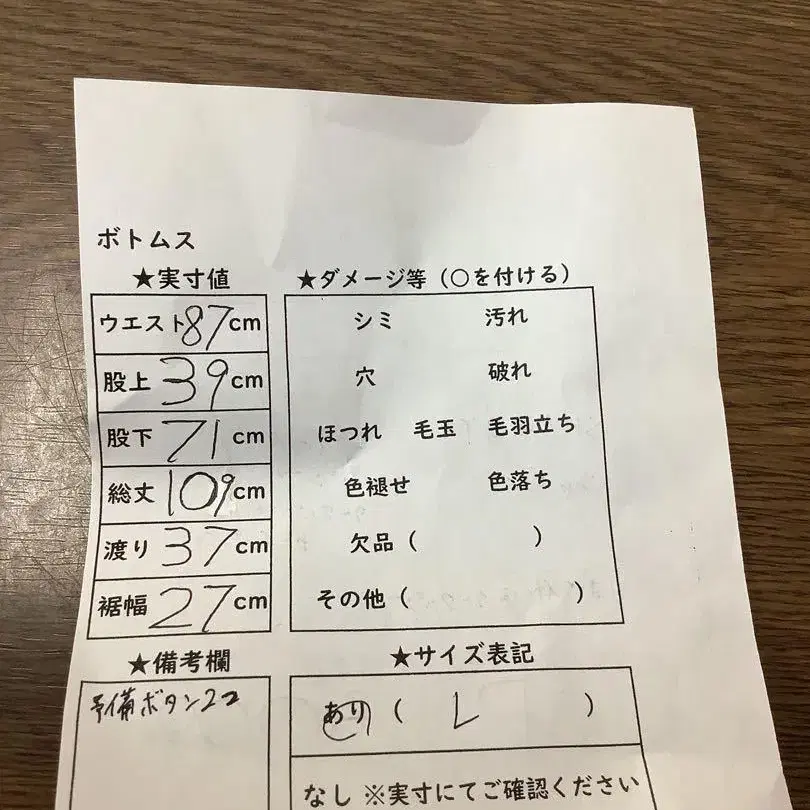 ボトムス
★実寸値
ウエスト87cm
股上39cm
股下71cm
総丈109cm
渡り37cm
裾幅27cm
★ダメージ等（○を付ける）
シミ 汚れ
穴 破れ
ほつれ 毛玉 毛羽立ち
色褪せ 色落ち
欠品（ ）
その他（ ）
★備考欄
予備ボタン2コ
★サイズ表記
あり（ L ）
なし ※実寸にてご確認ください